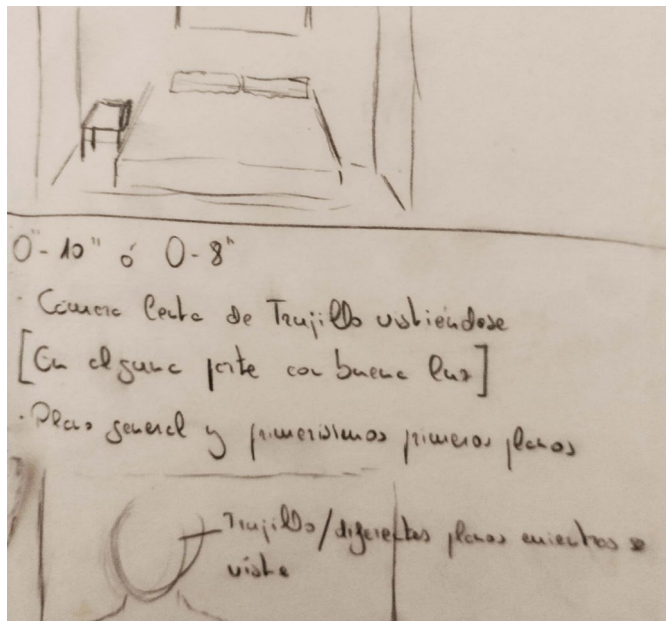 0"- 10" ó 0-8"
· Cámara lenta de Trujillo vistiéndose
[En alguna parte con buena luz]
· Plano general y primerísimos primeros planos
Trujillo/diferentes planos mientras se
viste